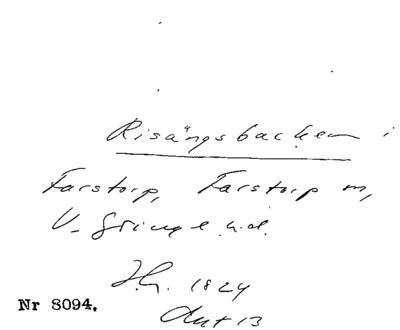 Risängsbacken i
Farstorp, Farstorp sn,
V. Göinge hd.
H.h. 1824
Akt 13
Nr 8094.